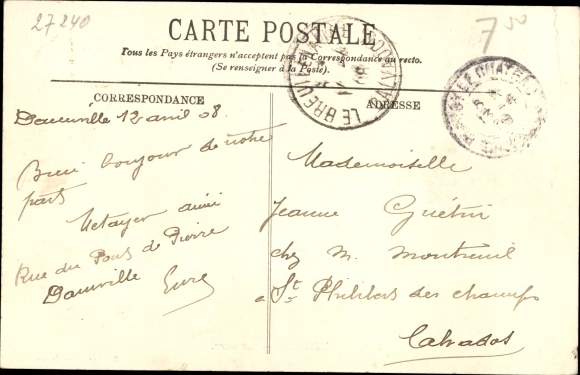 27240
7 50
CARTE POSTALE
Tous les Pays étrangers n'acceptent pas la Correspondance au recto.
(Se renseigner à la Poste).
CORRESPONDANCE
Damville 12 avril 08.
bonjour de notre
part
aimé
Rue du Pont de Pierre
Damville Eure
ADRESSE
Mademoiselle
Jeanne Guétin
chez M. Montreuil
à St Philbert des champs
Calvados
LE BREUIL